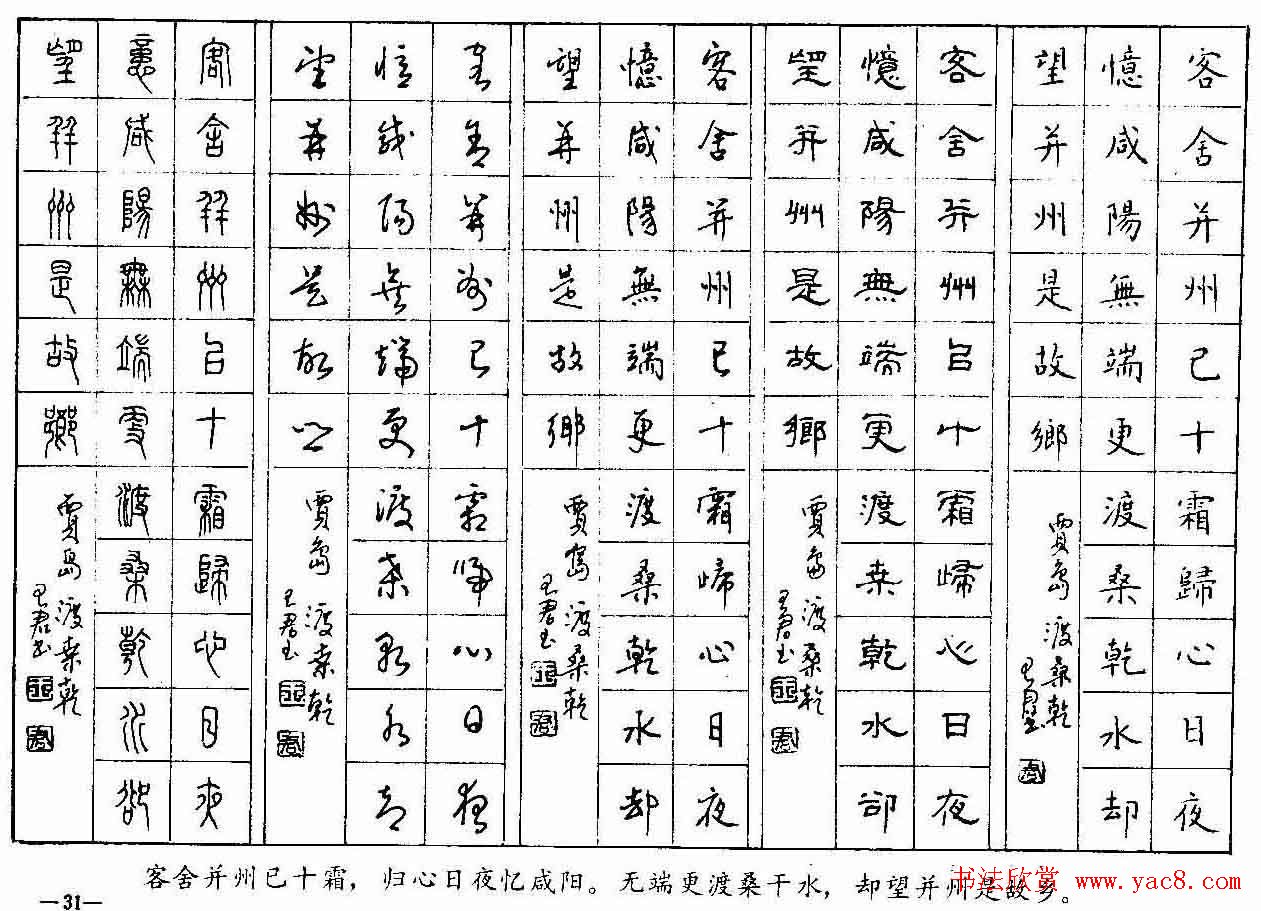 客舍并州已十霜歸心日夜
憶咸陽無端更渡桑乾水却
望并州是故鄉
賈島 渡桑乾
客舍并州已十霜歸心日夜
憶咸陽無端更渡桑乾水卻
望并州是故鄉
賈島 渡桑乾
客舍并州已十霜歸心日夜
憶咸陽無端更渡桑乾水却
望并州是故鄉
賈島 渡桑乾
客舍并州已十霜歸心日夜
憶咸陽無端更渡桑乾水却
望并州是故鄉
賈島 渡桑乾
客舍并州已十霜歸心日夜
憶咸陽無端更渡桑乾水卻
望并州是故鄉
賈島 渡桑乾
客舍并州已十霜，归心日夜忆咸阳。无端更渡桑干水，却望并州是故乡。
书法欣赏 www.yac8.com
—31—